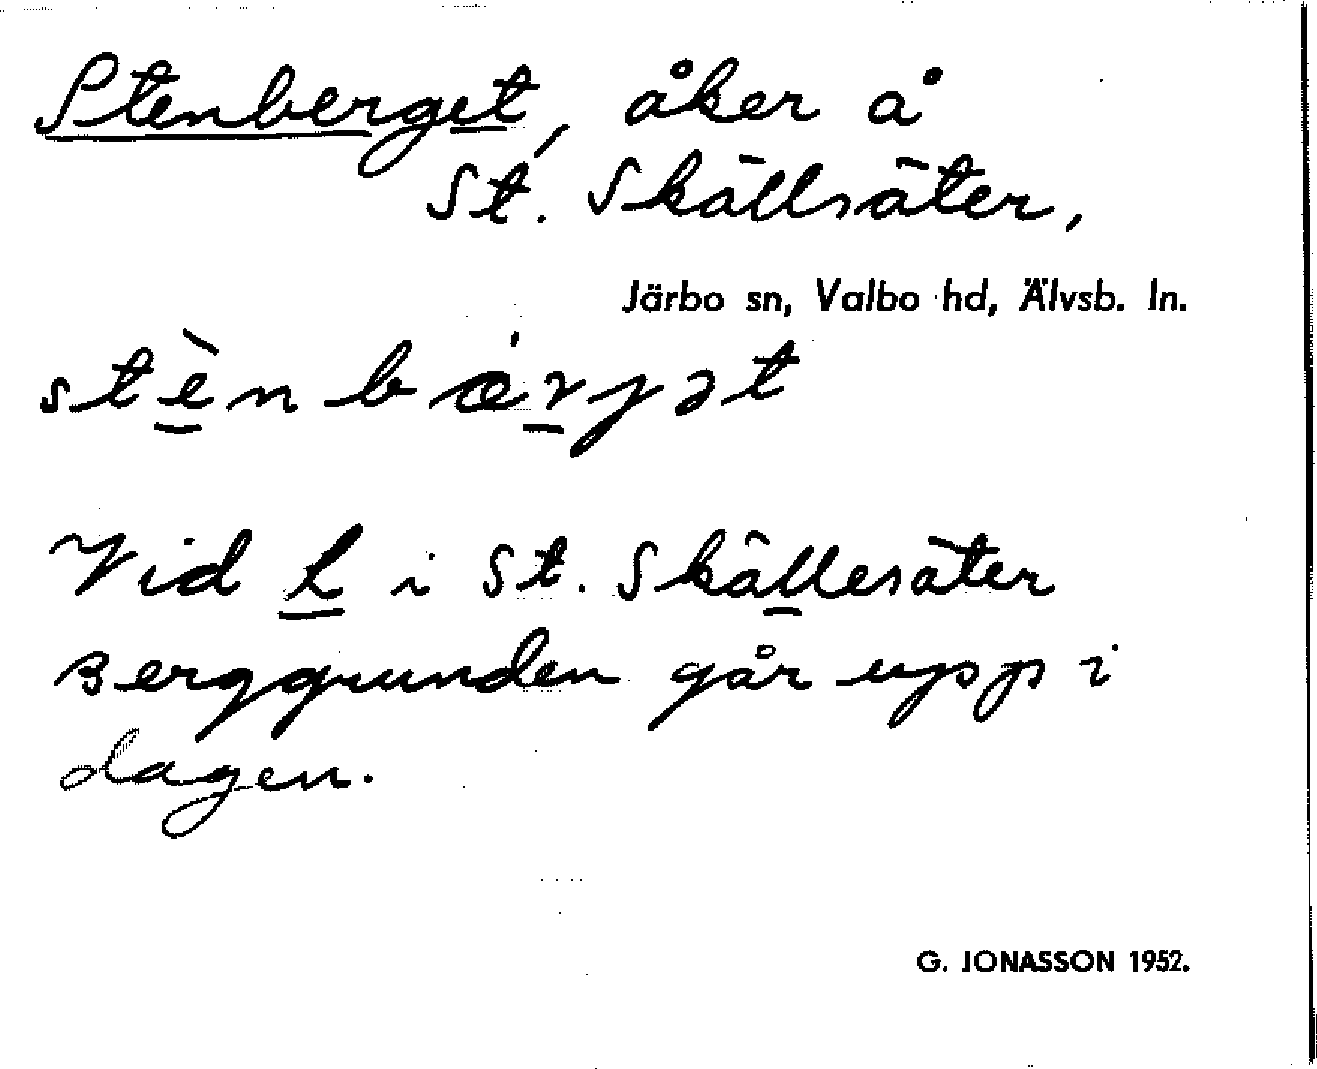 Stenberget, åker å
St. Skällsäter,
Järbo sn, Valbo hd, Älvsb. ln.
stènbærjət
Vid L i St. Skällesäter
Berggrunden går upp i
dagen.
G. JONASSON 1952.